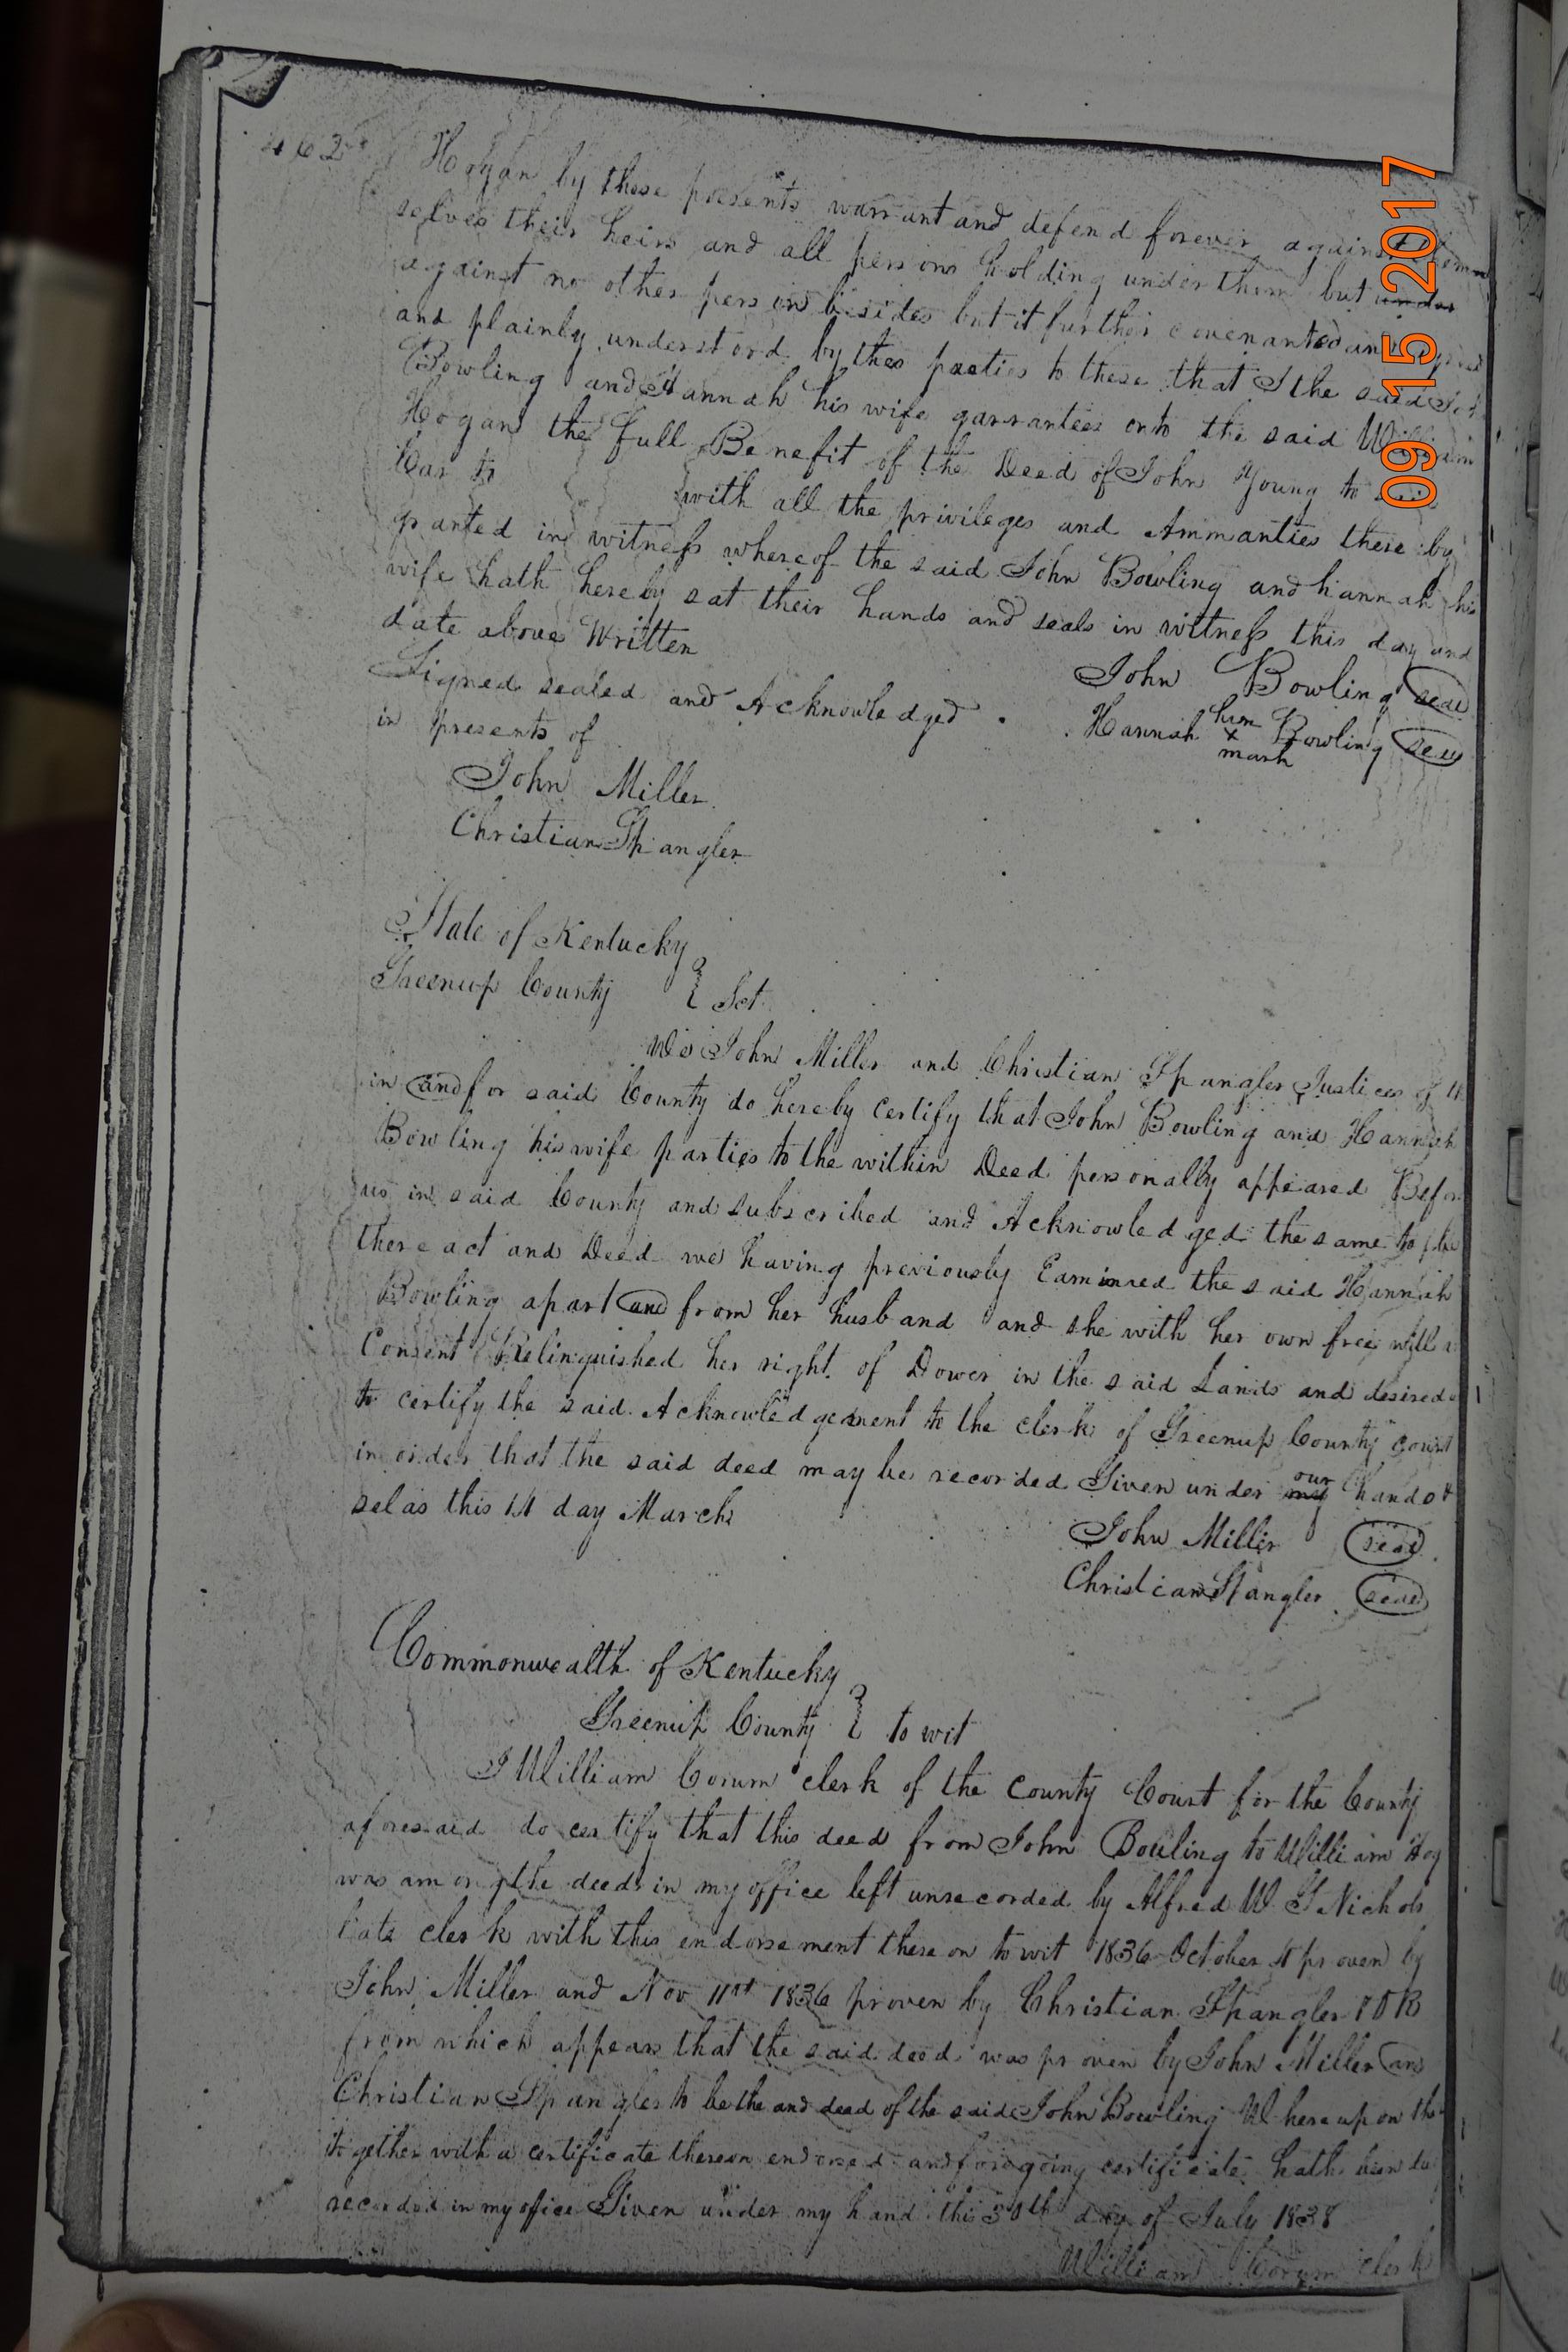 462
Hogan by these presents warrant and defend forever against them
selves their heirs and all persons holding under them but under
against no other person besides but it further covenanted and
and plainly understood by thes parties to these that I the said
Bowling and Hannah his wife garrantees onto the said William
Hogan the full Benefit of the Deed of John Young to
with all the privileges and Ammanties there by
granted in witness whereof the said John Bowling and hannah his
wife hath hereby sat their hands and seals in witness this day and
date above Written
John Bowling seal
Signed sealed and Acknowledged
Hannah her x mark Bowling seal
in presents of
John Miller
Christian Spangler
State of Kentucky
Greenup County } Sct
We John Miller and Christian Spangler Justices of
in and for said County do hereby certify that John Bowling and Hannah
Bowling his wife parties to the within Deed personally appeared Befor
us in said County and subscribed and Acknowledged the same to be
there act and Deed we having previously Eamined the said Hannah
Bowling apart and from her husband and she with her own free will
Consent Relinquished her right of Dower in the said Lands and desired
to certify the said Acknowledgement to the clerk of Greenup County Court
in order that the said deed may be recorded Given under my our hand &
selas this 14 day March
John Miller seal
Christian Spangler seal
Commonwealth of Kentucky
Greenup County } to wit
I William Corum clerk of the County Court for the County
aforesaid do certify that this deed from John Bouling to William Hog
was among the deeds in my office left unrecorded by Alfred W. G Nichols
late clerk with this endorsement there on to wit 1836 October 4 proven by
John Miller and Nov 11st 1836 proven by Christian Spangler
from which appears that the said deed was proven by John Miller and
Christian Spangler to be the and deed of the said John Bowling Whereupon the
together with a certificate thereon endorsed and foregoing certificate hath been du
recorded in my office Given under my hand this 30th day of July 1838
William Corum clerk
09 15 2017